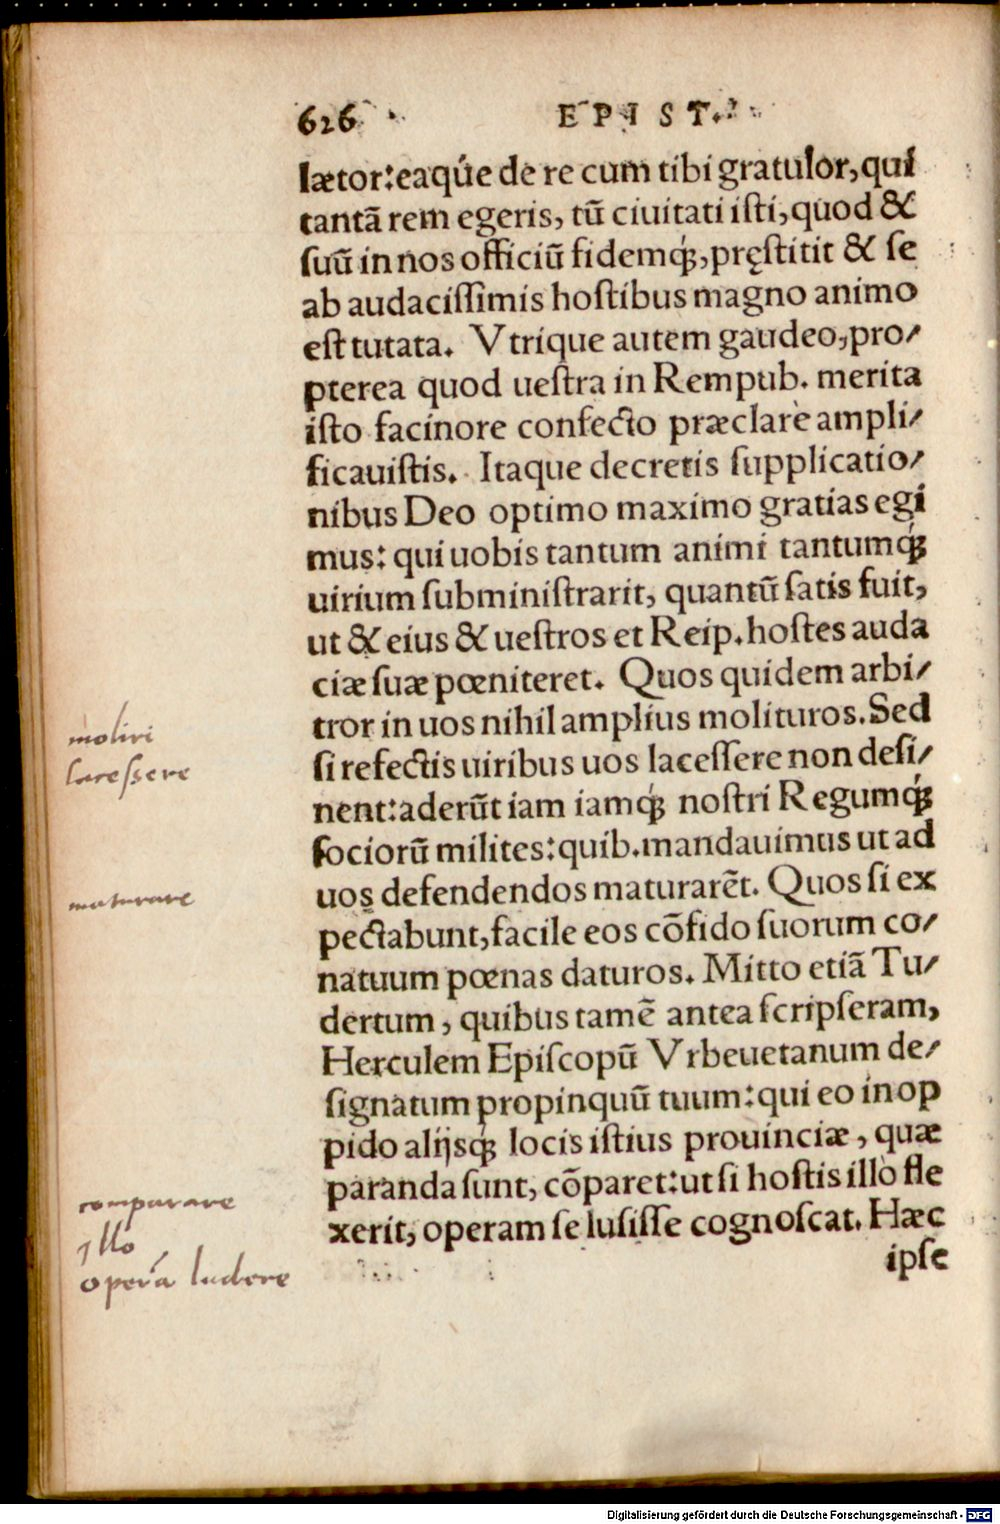 626 EPIST.
lætor:eaq́ue de re cum tibi gratulor,qui
tantã rem egeris, tũ ciuitati iſti,quod &
ſuũ in nos officiũ fidemq́;,pręſtitit & ſe
ab audaciſſimis hoſtibus magno animo
eſt tutata. Vtrique autem gaudeo,pro/
pterea quod ueſtra in Rempub. merita
iſto facinore confecto præclarè ampli/
ficauiſtis. Itaque decretis ſupplicatio/
nibus Deo optimo maximo gratias egi
mus: qui uobis tantum animi tantumq́;
uirium ſubminiſtrarit, quantũ ſatis fuit,
ut & eius & ueſtros et Reip.hoſtes auda
ciæ ſuæ pœniteret. Quos quidem arbi/
tror in uos nihil amplius molituros.Sed
ſi refectis uiribus uos laceſſere non deſi/
nent:aderũt iam iamq́; noſtri Regumq́;
ſociorũ milites:quib.mandauimus ut ad
uos defendendos maturarẽt. Quos ſi ex
pectabunt,facile eos cõfido ſuorum co/
natuum pœnas daturos. Mitto etiã Tu/
dertum, quibus tamẽ antea ſcripſeram,
Herculem Epiſcopũ Vrbeuetanum de/
ſignatum propinquũ tuum:qui eo in op
pido alijsq́; locis iſtius prouinciæ, quæ
paranda ſunt, cõparet:ut ſi hoſtis illò fle
xerit, operam ſe luſiſſe cognoſcat. Hæc
ipſe
moliri
laceſsere
maturare
comparare
Illo
operã ludere
Digitalisierung gefördert durch die Deutsche Forschungsgemeinschaft - DFG